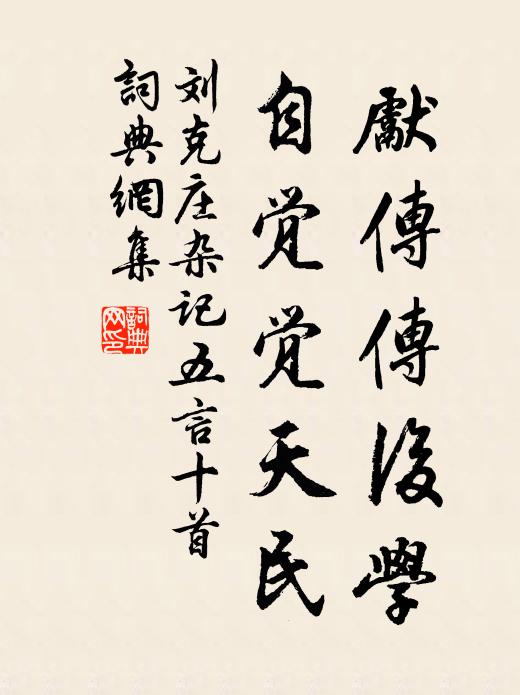 獻傳傳後學
自觉觉天民
刘克庄杂记五言十首
詞典網集
詞典网印